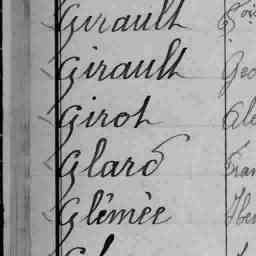 Girault
Girault Geo
Girot Ale
Glard Fran
Glémée